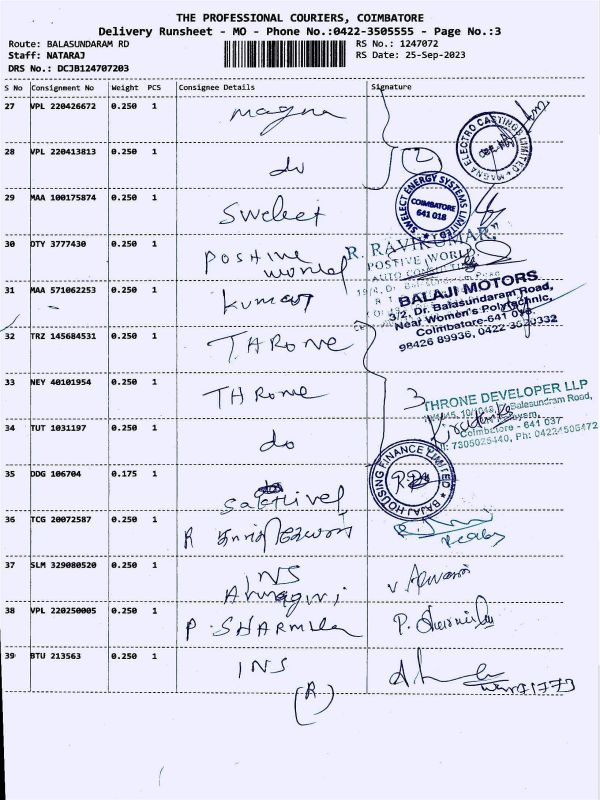 THE PROFESSIONAL COURIERS, COIMBATORE
Delivery Runsheet - MO - Phone No.:0422-3505555 - Page No.:3
Route: BALASUNDARAM RD
RS No.: 1247072
Staff: NATARAJ
RS Date: 25-Sep-2023
DRS No.: DCJB124707203
S No Consignment No Weight PCS Consignee Details Signature
27 VPL 220426672 0.250 1 magna
MAGNA ELECTRO CASTINGS LIMITED
28 VPL 220413813 0.250 1 do
2
29 MAA 100175874 0.250 1 Swelect
SWELECT ENERGY SYSTEMS LIMITED
COIMBATORE
641 018
30 DTY 3777430 0.250 1 Positive
world
R. RAVIKUMAR
POSTIVE WORLD
31 MAA 571062253 0.250 1 Kumar
BALAJI MOTORS
3/2, Dr. Balasundaram Road,
Near Women's Polytechnic,
Coimbatore-641
98426 89936, 0422-
32 TRZ 145684531 0.250 1 THRONE
33 NEY 40101954 0.250 1 THRONE
3
THRONE DEVELOPER LLP
Balasundram Road,
Coimbatore - 641 037
Ph:
34 TUT 1031197 0.250 1 do
BAJAJ HOUSING FINANCE LIMITED
35 DDG 106704 0.175 1 Sakthivel
36 TCG 20072587 0.250 1 R
37 SLM 329080520 0.250 1 INS
38 VPL 220250005 0.250 1 P. SHARMILA
P. Sharmila
39 BTU 213563 0.250 1 INS
(R)